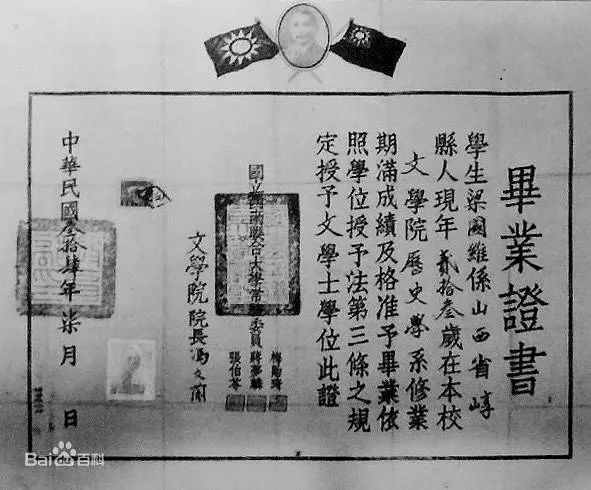 畢業證書
學生梁國維係山西省崞
縣人現年貳拾叁歲在本校
文學院歷史學系修業
期滿成績及格准予畢業依
照學位授予法第三條之規
定授予文學士學位此證
國立西南聯合大學常務委員
梅貽琦
蔣夢麟
張伯苓
文學院院長馮友蘭
中華民國叁拾肆年柒月 日
Bai百科